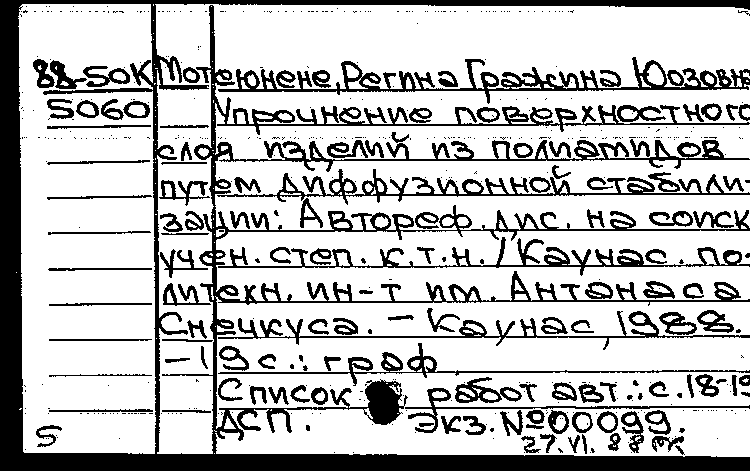 88-5ОК Мотеюнене, Регина Гражина Юозовна
5060 Упрочнение поверхностного
слоя изделий из полиамидов
путем диффузионной стабили-
зации: Автореф. дис. на соиск
учен. степ. к.т.н. / Каунас. по-
литехн. ин-т им. Антанаса
Снечкуса. – Каунас, 1988.
– 19 с.: граф.
Список работ авт.: с. 18-19
ДСП. Экз. №00099.
27.VI.88
5